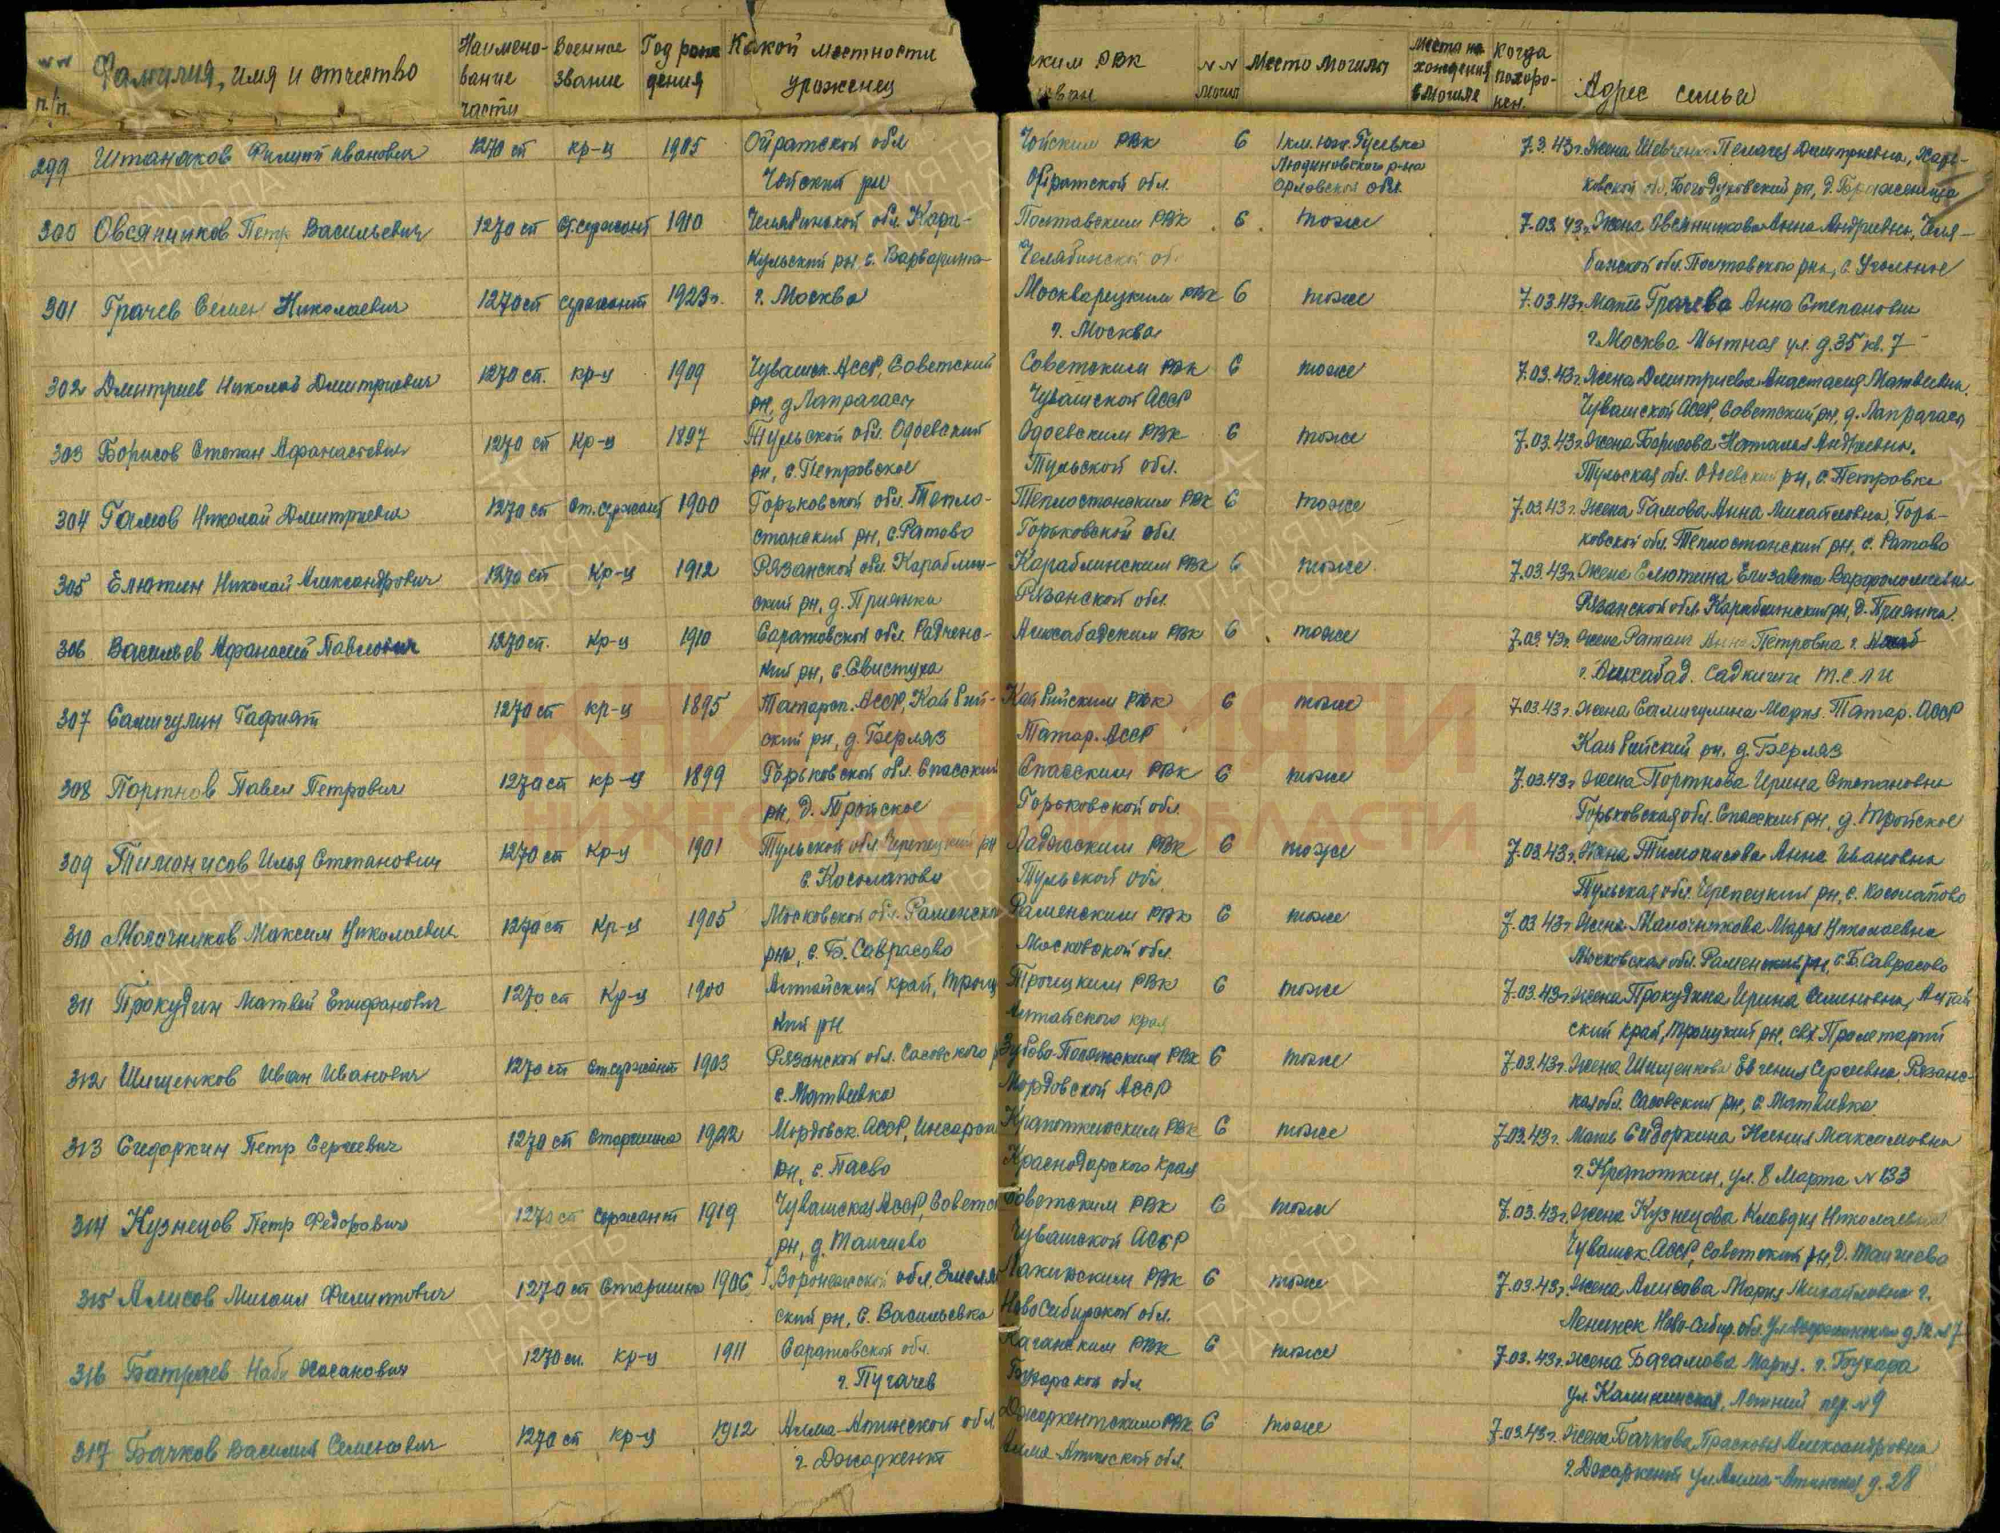 №№ п./п. Фамилия, имя и отчество Наимено-вание части Военное звание Год рождения Какой местности уроженец ским РВК ван №№ могил Место могилы Место на-хождения в могиле Когда похоро-нен. Адрес семьи
299 Штанаков Филипп Иванович 1270 сп кр-ц 1905 Ойратской обл Чойским РВК 6 1 км. Юж. Гусевка 7.3.43г. Жена Шевченко Пелагея Дмитриевна, Харь-
Чойский рн Ойратской обл. Людиновского р-на Орловской обл. ковской обл, Богодуховский рн, д.
300 Овсянников Петр Васильевич 1270 сп Ст.сержант 1910 Челябинской обл. Кара- Полтавским РВК 6 тоже 7.03.43г. Жена Овсянникова Анна Андриевна, Челя-
кульский рн, с. Варваринка Челябинской об. бинской обл. Полтавского рна, с. Угольное
301 Грачев Семен Николаевич 1270 сп сержант 1923г. г. Москва Москварецким РВК 6 тоже 7.03.43г. Мать Грачева Анна Степановна
г. Москва г. Москва Мытная ул. д.35 кв.7
302 Дмитриев Николай Дмитриевич 1270 сп. кр-ц 1909 Чувашск. АССР, Советский Советским РВК 6 тоже 7.03.43г. Жена Дмитриева Анастасия Матвеевна.
рн, д Лапракасы Чувашской АССР Чувашской АССР, Советский рн, д. Лапракасы
303 Борисов Степан Афанасьевич 1270 сп Кр-ц 1897 Тульской обл. Одоевский Одоевским РВК 6 тоже 7.03.43г. Жена Борисова Наталья Андреевна.
рн, с. Петровское Тульской обл. Тульская обл. Одоевский рн, с. Петровка
304 Гамов Николай Дмитриевич 1270 сп Ст.сержант 1900 Горьковской обл. Тепло- Теплостанским РВК 6 тоже 7.03.43г. Жена Гамова Анна Михайловна, Горь-
станский рн, с. Ратово Горьковской обл. ковской обл. Теплостанский рн, с. Ратово
305 Елютин Николай Александрович 1270 сп Кр-ц 1912 Рязанской обл. Караблин- Караблинским РВК 6 тоже 7.03.43г. Жена Елютина Елизавета Варфоломеевна
ский рн, д. Приянки Рязанской обл. Рязанской обл. Караблинский рн, д. Приянки.
306 Васильев Афанасий Павлович 1270 сп. кр-ц 1910 Саратовской обл. Радченс- Ашхабадским РВК 6 тоже 7.03.43г. Жена Анна Петровна г.
кий рн, с. Свистуха г. Ашхабад.
307 Самигулин Гафият 1270 сп кр-ц 1895 Татарск. АССР, Кайбий- Кайбийским РВК 6 тоже 7.03.43г. Жена Самигулина Мария. Татар. АССР
ский рн, д. Берляз Татар. АССР Кайбийский рн, д. Берляз
308 Портнов Павел Петрович 1270 сп кр-ц 1899 Горьковской обл. Спасский Спасским РВК 6 тоже 7.03.43г Жена Портнова Ирина Степановна
рн, д. Тройское Горьковской обл. Горьковская обл. Спасский рн, д. Тройское
309 Тимонисов Илья Степанович 1270 сп Кр-ц 1901 Тульской обл. Черепецкий рн РВК 6 тоже 7.03.43г. Жена Тимонисова Анна Ивановна
с. Косолапово Тульской обл Тульская обл. Черепецкий рн, с. Косолапово
310 Молочников Максим Николаевич 1270 сп Кр-ц 1905 Московской обл. Раменско Раменским РВК 6 тоже 7.03.43г Жена Малочникова Мария Николаевна
рна, с. Б. Саврасово Московской обл. Московская обл. Раменский рн, с. Б. Саврасово
311 Прокудин Матвей Епифанович 1270 сп Кр-ц 1900 Алтайский край, Троиц Троицким РВК 6 тоже 7.03.43г Жена Прокудина Ирина Семеновна, Алтай
кий рн Алтайского края ский край, Троицкий рн, свх Пролетарий
312 Шищенков Иван Иванович 1270 сп Ст.сержант 1903 Рязанской обл. Сасовского р Зубово-Полянским РВК 6 тоже 7.03.43г. Жена Шищенкова Евгения Сергеевна, Рязанс-
с. Матвеевка Мордовской АССР кая обл. Сасовский рн, с. Матвеевка
313 Сидоркин Петр Сергеевич 1270 сп Старшина 1922 Мордовск. АССР, Инсарски Кропоткинским РВК 6 тоже 7.03.43г. Мать Сидоркина Ксения Максимовна
рн, с. Паево Краснодарского края г. Кропоткин, ул. 8 Марта № 133
314 Кузнецов Петр Федорович 1270 сп Сержант 1919 Чувашская АССР, Советск Советским РВК 6 тоже 7.03.43г. Жена Кузнецова Клавдия Николаевна
рн, д. Танчиево Чувашской АССР Чувашск. АССР, Советский рн, д. Танчиево
315 Алисов Михаил Филиппович 1270 сп Старшина 1906 Воронежской обл. Землян РВК 6 тоже 7.03.43г. Жена Алисова Мария Михайловна г.
ский рн, с. Васильевка НовоСибирской обл. Ленинск Ново-Сибир. обл.
316 Батраев Наби Хасанович 1270 сп. кр-ц 1911 Саратовской обл. Каганским РВК 6 тоже 7.03.43г. Жена Багамова Мария. г. Бухара
г. Пугачев Бухарской обл ул. Калининская, Летний пер. № 9
317 Бачков Василий Семенович 1270 сп кр-ц 1912 Алма-Атинской обл. Джаркентским РВК 6 тоже 7.03.43г. Жена Бачкова Прасковья Александровна
г. Джаркент Алма-Атинской обл. г. Джаркент ул. Алма-Атинская д. 28
КНИГА ПАМЯТИ
НИЖЕГОРОДСКОЙ ОБЛАСТИ
ПАМЯТЬ НАРОДА